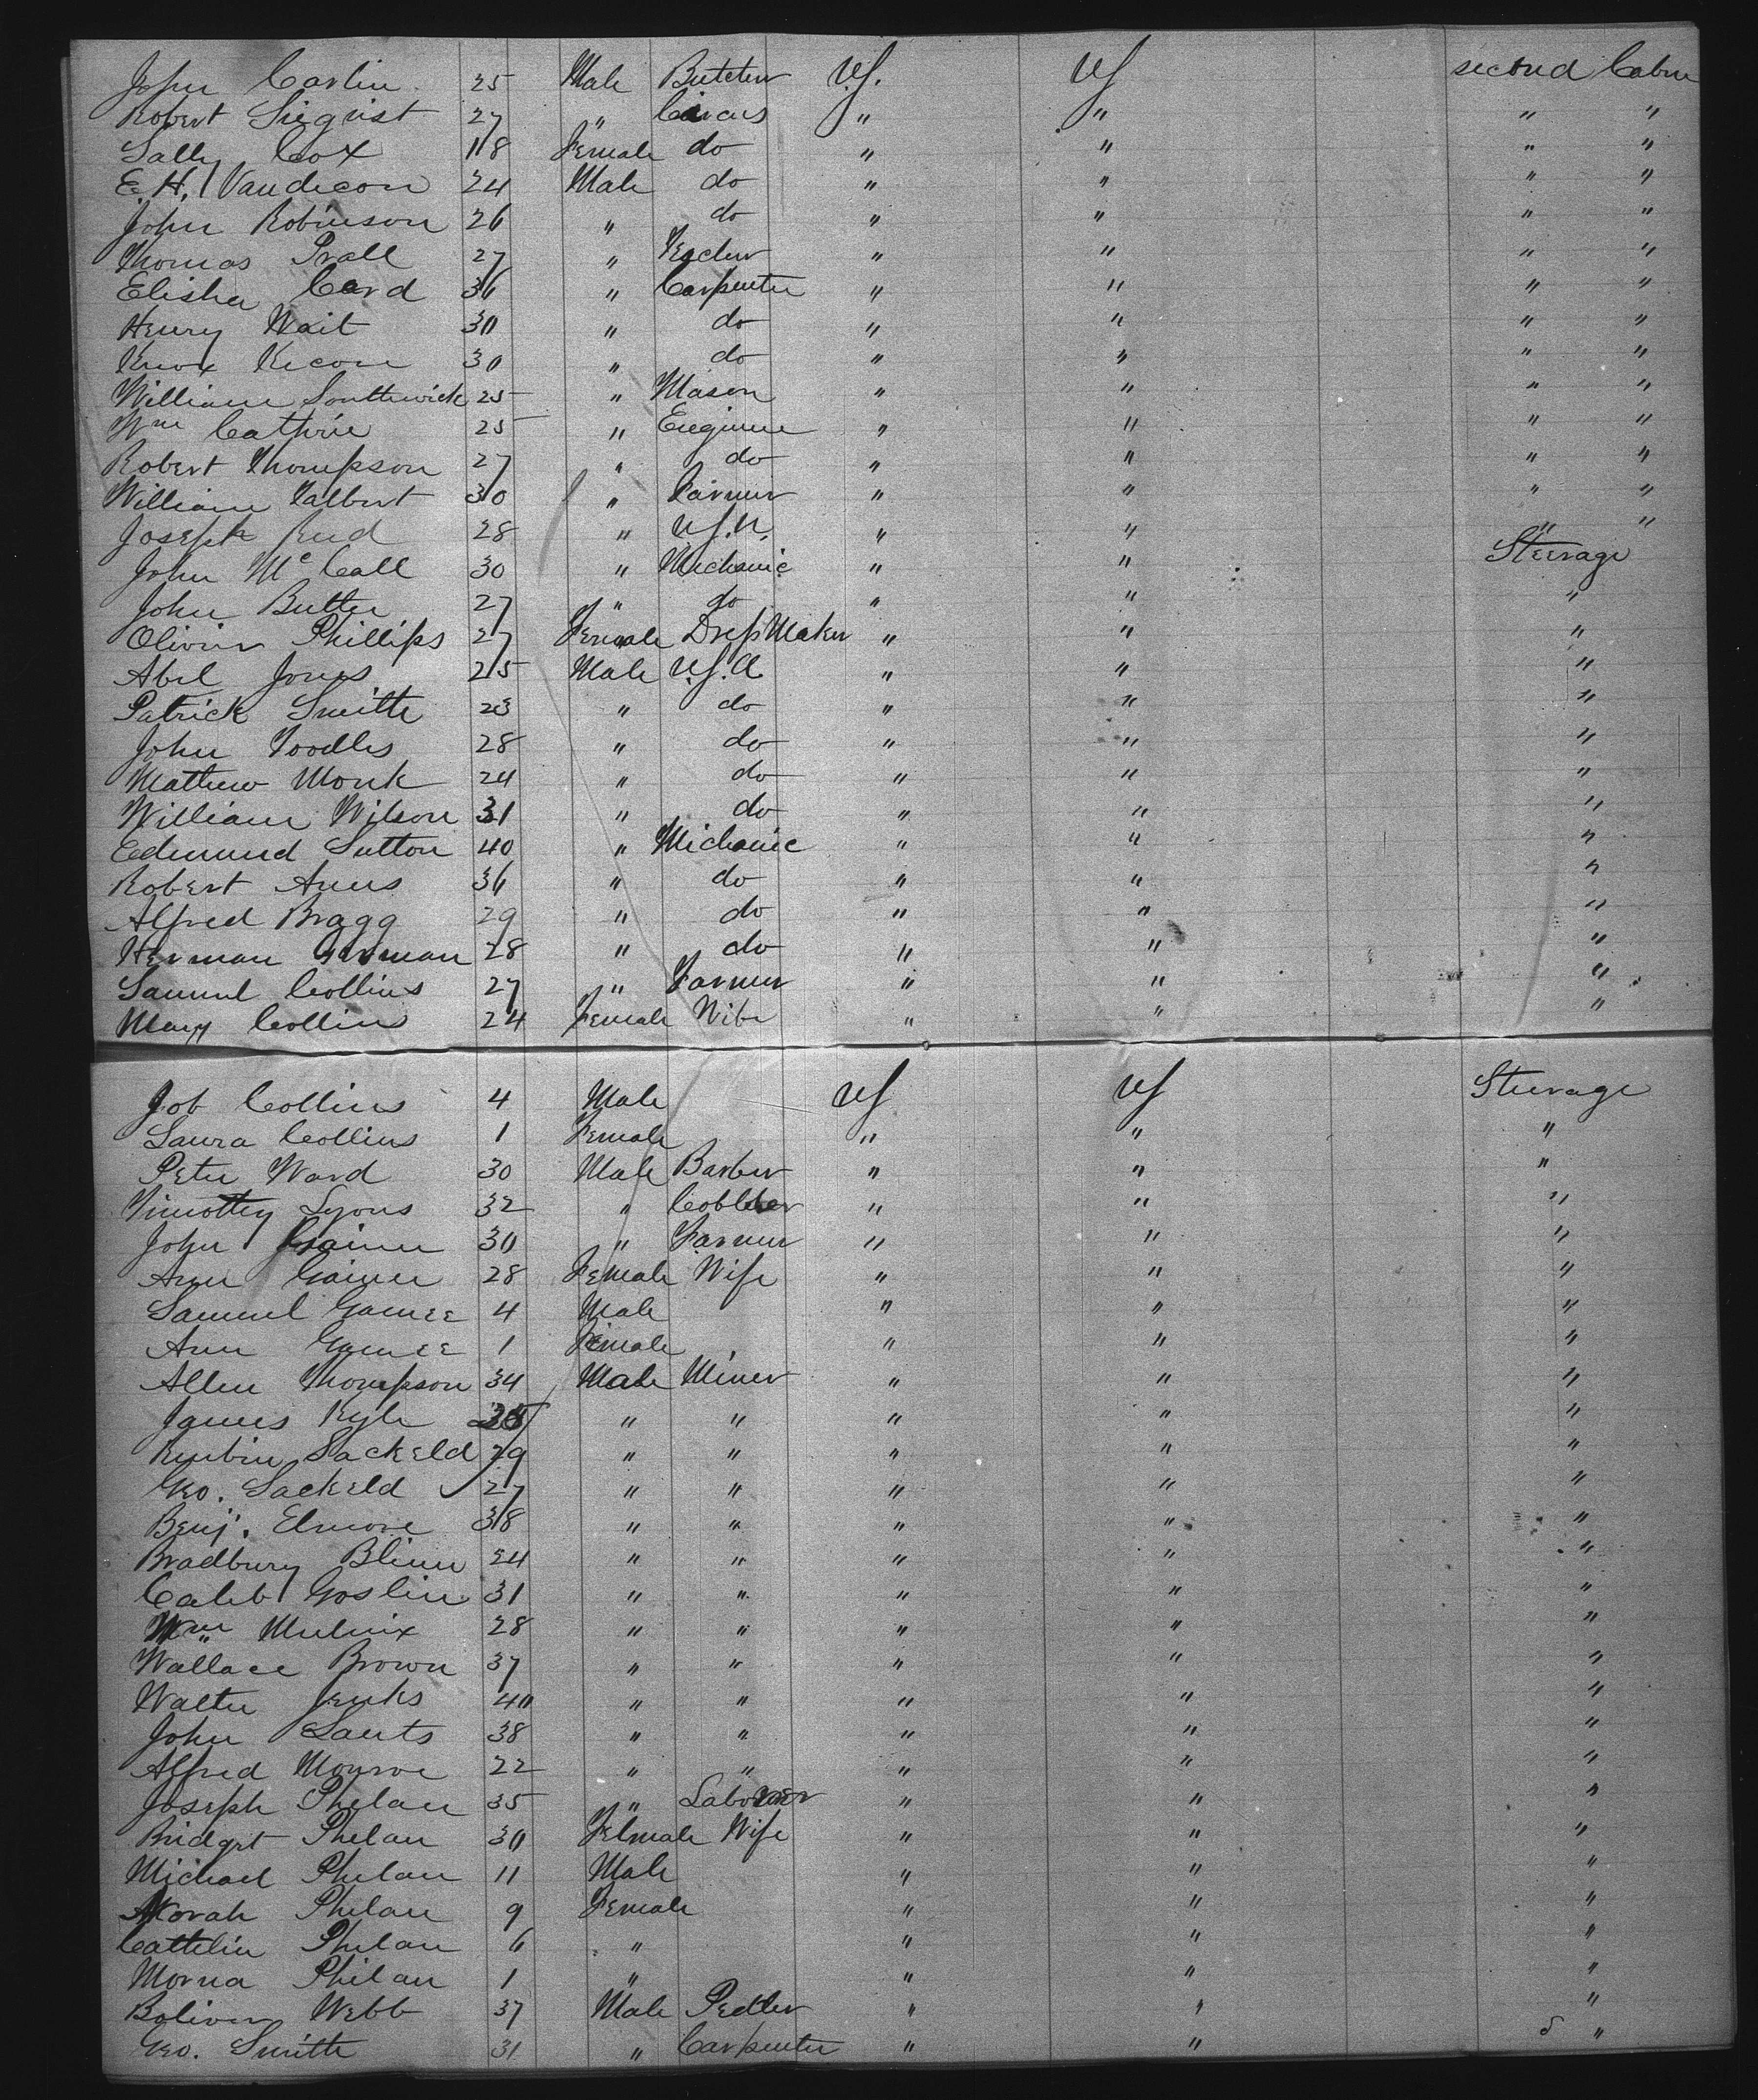 John Carlin. 25 Male Butcher US. US second Cabin
Robert Siegrist 27 " Circus " " " "
Sally Cox 18 Female do " " " "
E. H. Vandecon 24 Male do " " " "
John Robinson 26 " do " " " "
Thomas Prall 27 " " " " "
Elisha Card 36 " Carpenter " " " "
Henry Wait 30 " do " " " "
Knox 30 " do " " " "
William Southwick 25 " Mason " " " "
Wm Cathrie 25 " Engineer " " " "
Robert Thompson 27 " do " " " "
William Talbert 30 " Farmer " " " "
Joseph Reed 28 " U.S.N. " " " "
John McCall 30 " Mechanic " " Steerage
John Butler 27 " do " " "
Olivia Phillips 27 Female Dress Maker " " "
Abel Jones 25 Male U.S.A " " "
Patrick Smith 23 " do " " "
John Toodles 28 " do " " "
Mathew Monk 24 " do " " "
William Wilson 31 " do " " "
Edmund Sutton 40 " Michanic " " "
Robert Ames 36 " do " " "
Alfred Bragg 29 " do " " "
Herman German 28 " do " " "
Samuel Collins 27 " Farmer " " "
Mary Collins 24 Female Wife " " "
Job Collins 4 Male US US Steerage
Laura Collins 1 Female " " "
Peter Ward 30 Male Barber " " "
Timothy Lyons 32 " Cobbler " " "
John Gainer 30 " Farmer " " "
Ann Gainer 28 Female Wife " " "
Samuel Gainer 4 Male " " "
Ann Gainer 1 Female " " "
Allen Thompson 34 Male Miner " " "
James Kyle " " " " "
Reubin Sackeld 29 " " " " "
Geo. Sackeld 27 " " " " "
Benj. Elmore 38 " " " " "
Bradbury Blinn 24 " " " " "
Caleb Goslin 31 " " " " "
Wm Mulnix 28 " " " " "
Wallace Brown 37 " " " " "
Walter Jenks 40 " " " " "
John Lants 38 " " " " "
Alfred Monroe 22 " " " " "
Joseph Phelan 35 " Laborer " " "
Bridget Phelan 30 Female Wife " " "
Michael Phelan 11 Male " " "
Norah Phelan 9 Female " " "
Cattelin Phelan 6 " " " "
Morna Phelan 1 " " " "
Boliver Webb 37 Male Pedler " " "
Geo. Smith 31 " Carpenter " " "